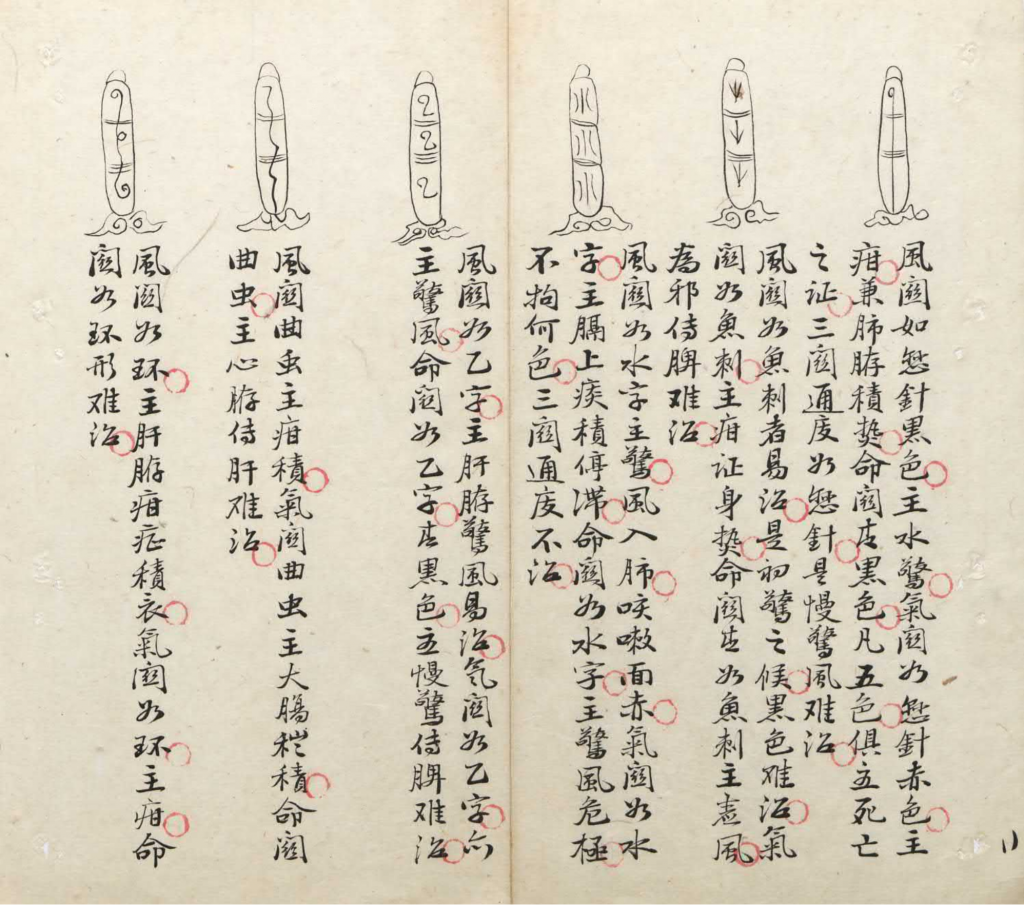 風関如悬針黒色主水驚氣関如悬針赤色主
疳兼肺脖積热命関皮黒色凡五色俱主死亡
之証三関通度如悬針是慢驚風难治
風関如魚刺者易治是初驚之候黒色难治氣
関如魚刺主疳証身热命関皮如魚刺主風
為邪侍脾难治
風関如水字主驚風入肺咳嗽面赤氣関如水
字主膈上痰積停滞命関如水字主驚風危極
不拘何色三関通度不治
風関如乙字主肝脖驚風易治気関如乙字亦
主驚風命関如乙字皮黒色主慢驚侍脾难治
風関曲虫主疳積氣関曲虫主大腸積命関
曲虫主心脖侍肝难治
風関如环主肝脖疳症積衣氣関如环主疳命
関如环形难治